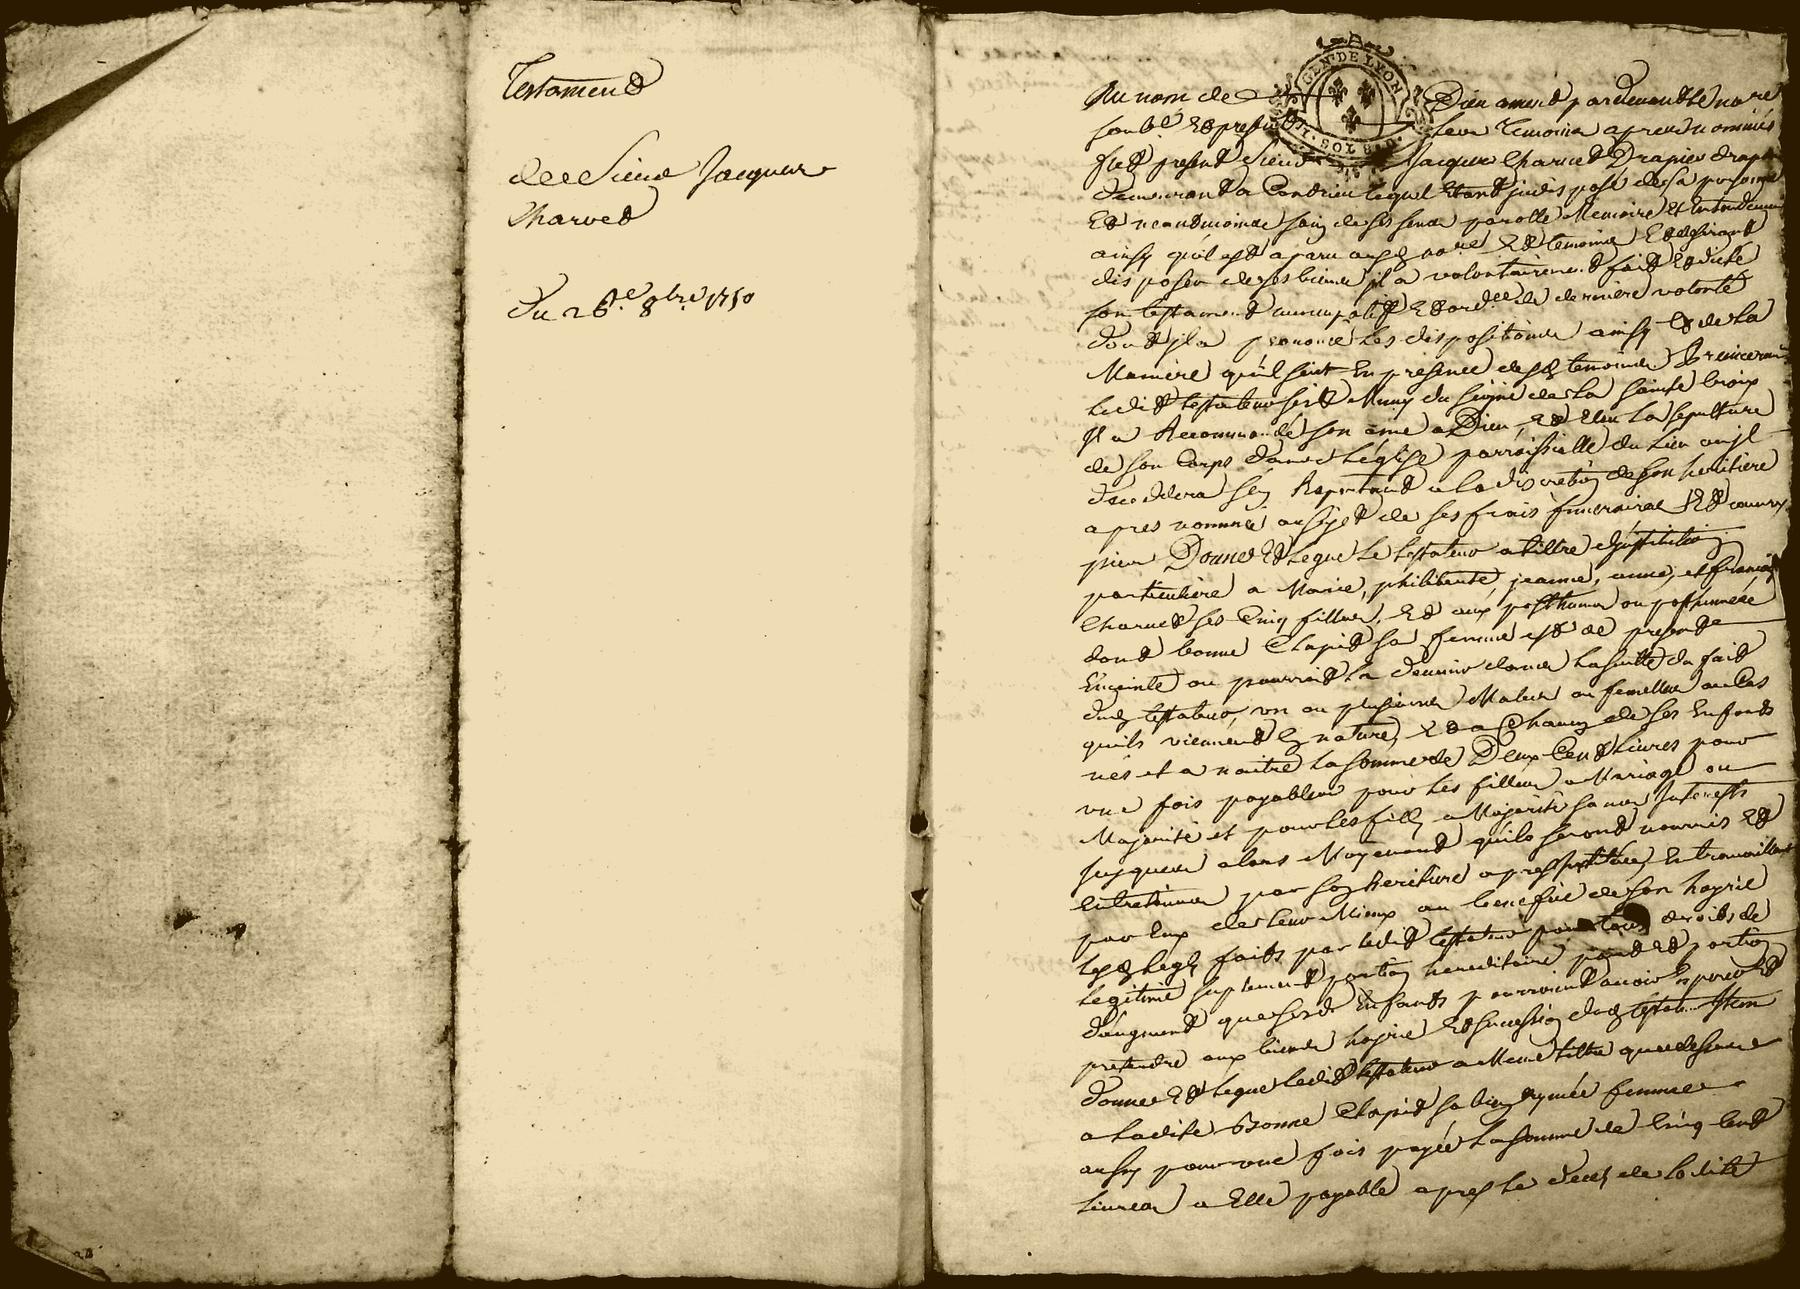 Testament
de Sieur Jacques
Charvet
Du 26e. 8bre 1750
GEN. DE LYON
SOLS
Au nom de Dieu amen pardevant le no.re
sous.né Et presents les temoins apres nommés
fut present Sieur Jacques Charvet Drapier drapant
demeurant a Condrieu lequel Etant indisposé de sa personne
Et neantmoins sain de ses sens parolle Memoire Et Entendement
ainsy qu'il est aparu auxd. no.re Et temoins Et desirant
disposer de ses biens il a volontairement fait Et dicté
son testament nuncupatif Et ord.ce de derniere volonté
dont il a prononcé les dispositions ainsy Et de la
Maniere qu'il suit En presence desd. temoins Premierement
ledit testateur s'est Muny du signe de la sainte Croix
Il a Recommandé son ame a Dieu, Et Elu la sepulture
de son Corps dans L'églize parroissialle du Lieu ou jl
decedera s'en Raportant a la discretion de son heritiere
apres nommée au sujet de ses frais funeraires Et oeuvres
pies Donne Et Legue Le testateur a tiltre d'institution
particuliere a Marie, philiberte, jeanne, anne, et françoise
Charvet ses Cinq filles, Et aux posthumes ou posthumes
dont bonne Chapit sa femme est de present
Enceinte ou pourroit la devenir dans la suitte du fait
dud. testateur, un ou plusieurs Males ou femelles au Cas
qu'ils viennent En nature, Et a Chacun de ses Enfants
nés et a naitre La somme de Deux Cent Livres pour
une fois payables pour Les filles a Mariage ou
Majorité et pour les fils a Majorité sans Interests
jusques alors Moyenant qu'ils seront nourris Et
Entretenus par son heritiere apres instituée, En travaillant
par Eux de leur Mieux au benefice de son hoyrie
lesd. Legs faits par ledit testateur pour tous droits de
Legitime suplement portion hereditaire part Et portion
d'augment que sesd. Enfants pourroient avoir Esperer Et
pretendre aux biens hoyrie Et succession dud. testat. Item
donne Et Legue Ledit testateur a Meme tiltre que dessus
a Ladite Bonne Chapit sa bien aymée femme
aussy pour une fois payée La somme de Cinq Cent
Livres a Elle payable apres le deces de ladite